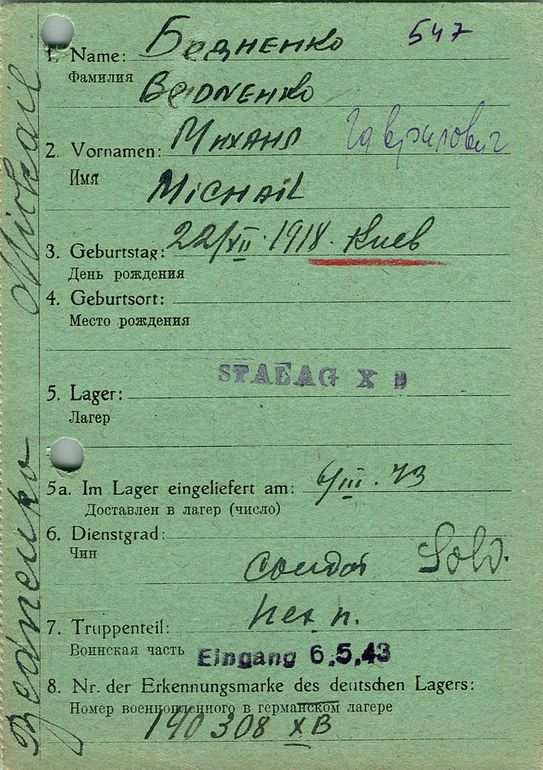 547
1. Name: Бедненко
Фамилия
Bednenko
2. Vornamen: Михаил Гаврилович
Имя
Michail
3. Geburtstag: 22/XII. 1918. Киев
День рождения
4. Geburtsort:
Место рождения
STALAG X B
5. Lager:
Лагер
5a. Im Lager eingeliefert am: 6/III. 43
Доставлен в лагер (число)
6. Dienstgrad:
Чин
солдат Sold.
7. Truppenteil:
Воинская часть
Eingang 6.5.43
8. Nr. der Erkennungsmarke des deutschen Lagers:
Номер военнопленного в германском лагере
190308 XB
Bednenko Michail